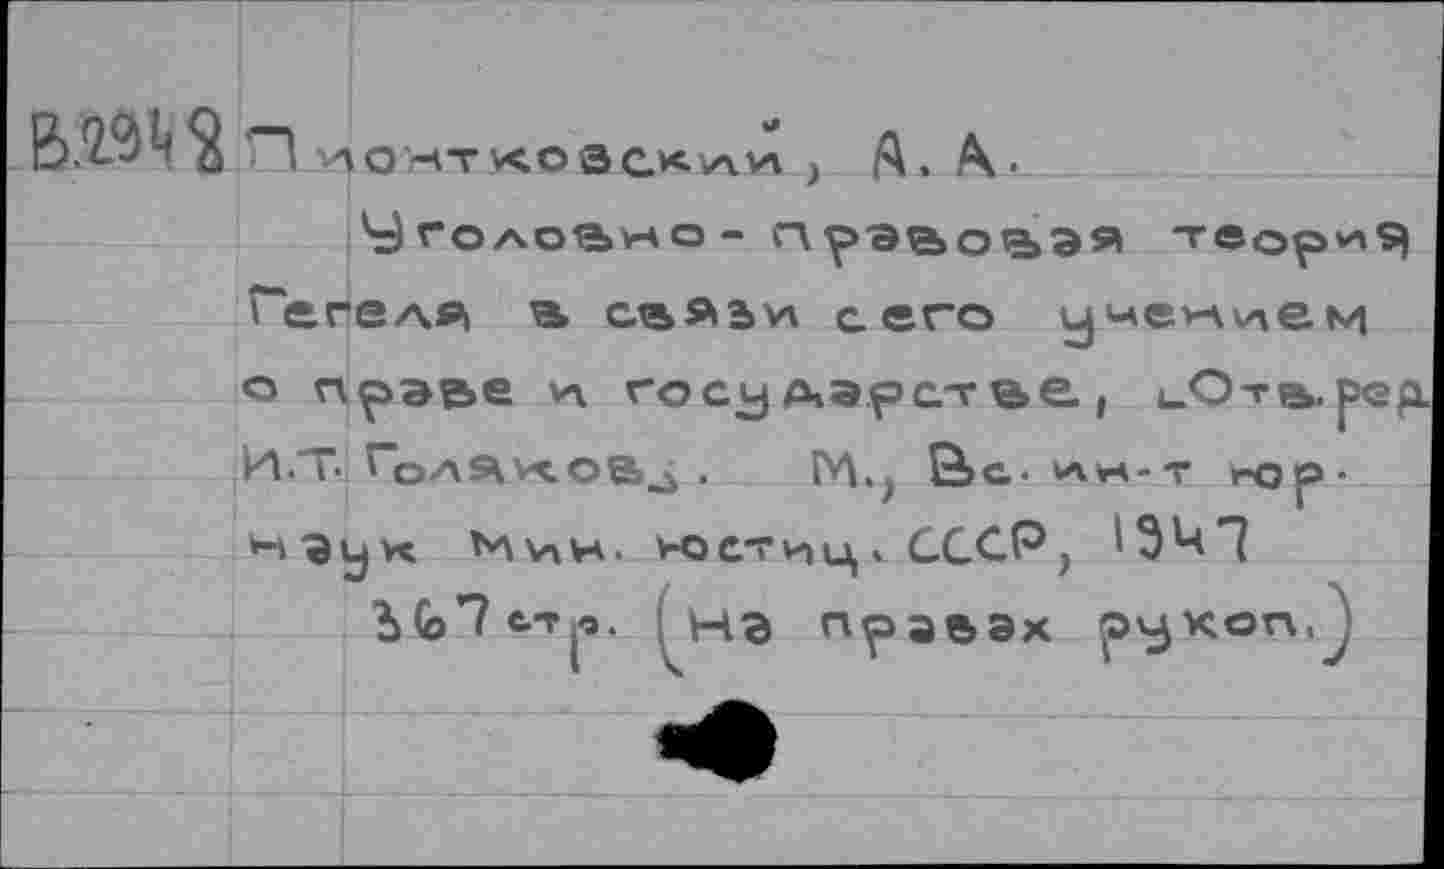 В.2948 Пионтковский, А. А.
Уголовно- правовая теория
Гегеля в связи с его учением
о праве и государстве, [Отв. ред.
И.Т. Голяков]. М., Вс. ин-т юр.
наук мин. юстиц. СССР, 1947
367 стр. (на правах рукоп.)